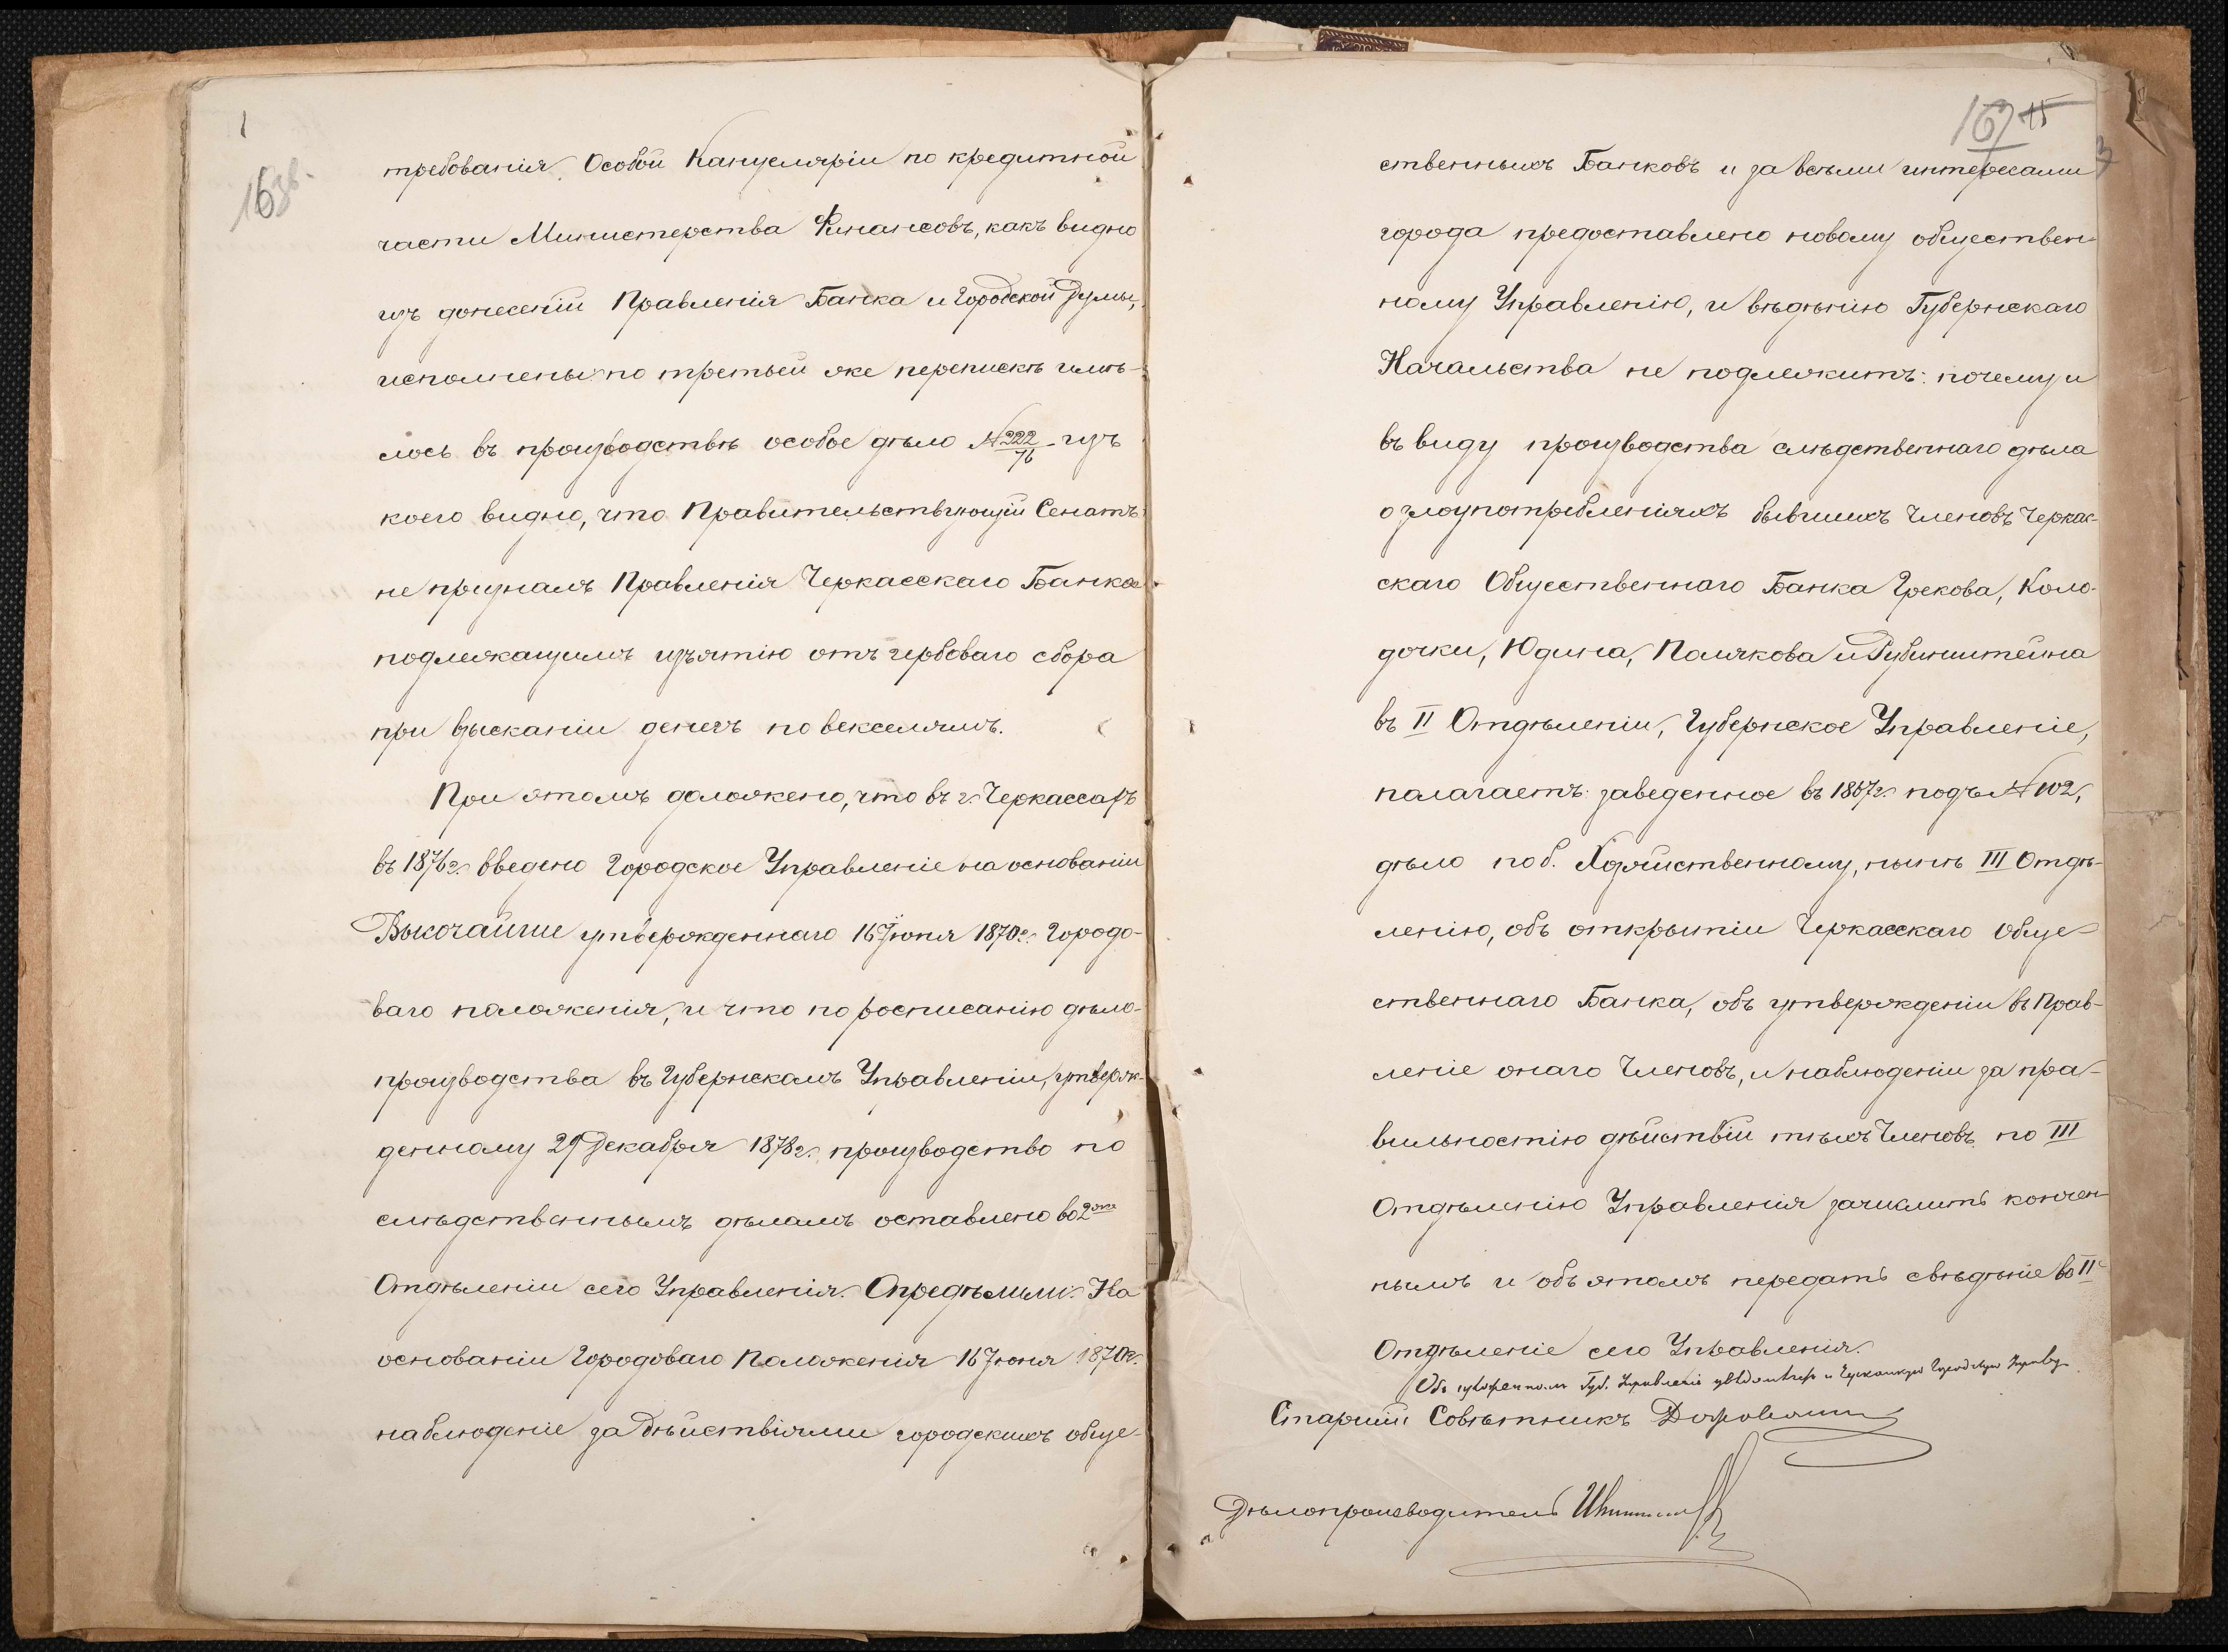 163б.
требованія Особой Канцеляріи по кредитной
части Министерства Финансовъ, какъ видно
изъ донесеній Правленія Банка и Городской Думы,
исполнены: по третьей же перепискѣ имѣ-
лось въ производствѣ особое дѣло № 222/76 изъ
коего видно, что Правительствующій Сенатъ
не призналъ Правленія Черкасскаго Банка
подлежащимъ изъятію отъ гербоваго сбора
при взысканіи денегъ по векселямъ.
При этомъ доложено, что въ г. Черкассахъ
въ 1876 г. введено Городское Управленіе на основаніи
Высочайше утвержденнаго 16 Іюня 1870 г. Городо-
ваго положенія, и что по росписанію дѣло-
производства въ Губернскомъ Управленіи, утверж-
денному 29 Декабря 1878 г. производство по
слѣдственнымъ дѣламъ оставлено во 2мъ
Отдѣленіи сего Управленія. Опредѣлили: На
основаніи Городоваго Положенія 16 Іюня 1870 г.
наблюденіе за дѣйствіями городскихъ обще-
167 15
ственныхъ Банковъ и за всѣми интересами
города предоставлено новому обществен-
ному Управленію, и вѣдѣнію Губернскаго
Начальства не подлежитъ: почему и
въ виду производства слѣдственнаго дѣла
о злоупотребленіяхъ бывшихъ Членовъ Черкас-
скаго Общественнаго Банка Грекова, Коло-
дочки, Юдина, Полякова и Рубинштейна
въ II Отдѣленіи, Губернское Управленіе,
полагаетъ: заведенное въ 1867 г. подъ № 102,
дѣло по б. Хозяйственному, нынѣ III Отдѣ-
ленію, объ открытіи Черкасскаго Обще-
ственнаго Банка, объ утвержденіи въ Прав-
леніе онаго Членовъ, и наблюденіи за пра-
вильностію дѣйствій тѣхъ Членовъ по III
Отдѣленію Управленія зачислить кончен-
нымъ и объ этомъ передать свѣдѣніе во II
Отдѣленіе сего Управленія.
Губ. Управленіе
Старшій Совѣтникъ
Дѣлопроизводитель